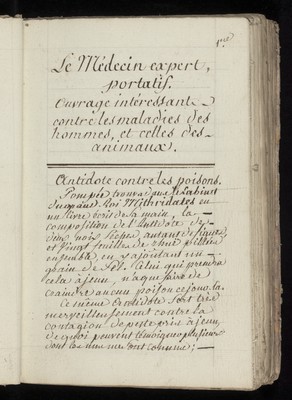 1ere
Le Médecin expert,
portatif.
Ouvrage intéressant
contre les maladies des
hommes, et celles des
animaux.
Antidote contre les poisons.
Pompée trouva dans le Cabinet
du grand Roi Mithridates en
un livre écrit de sa main, la
composition de l'Antidote de
deux noix sèches, autant de figues,
et vingt feuilles de rhue pillées
ensemble, en y ajoutant un
grain de Sel. Celui qui prendra
cela à jeun, n'a que faire de
craindre aucun poison ce jour là.
Ce même Antidote sert très
merveilleusement contre la
contagion de peste pris à jeun,
de quoi peuvent témoigner plusieurs